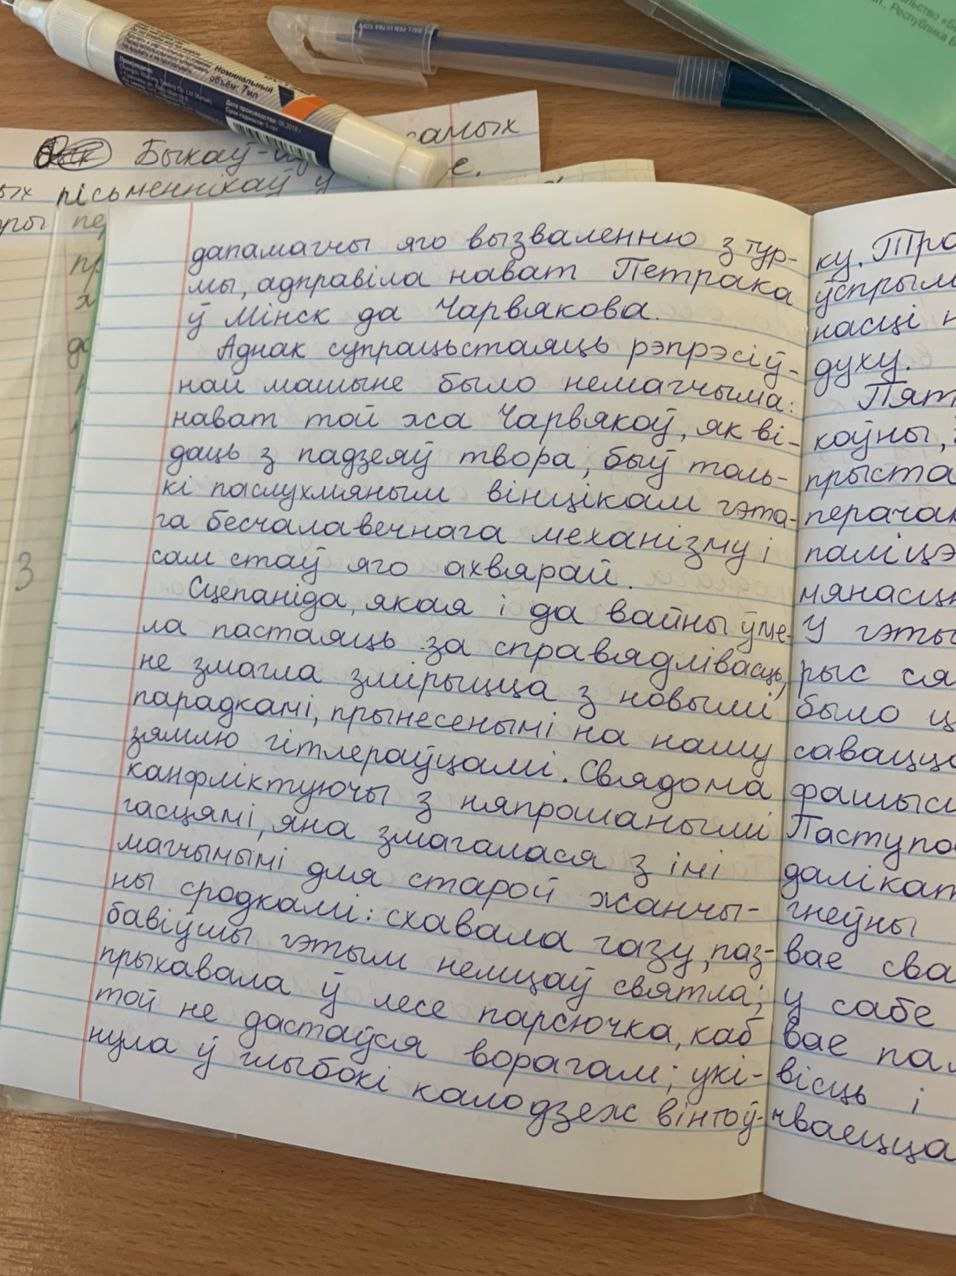 Номинальный
объём: 7мл
Быкаў-
самых
пісьменнікаў у
дапамагчы яго вызваленню з тур-
мы, адправіла нават Петрака
ў Мінск да Чарвякова.
Аднак супрацьстаяць рэпрэсіў-
най машыне было немагчыма:
нават той жа Чарвякоў, як ві-
даць з падзеяў твора, быў толь-
кі паслухмяным вінцікам гэта-
га бесчалавечнага механізму і
сам стаў яго ахвярай.
Сцепаніда, якая і да вайны ўме-
ла пастаяць за справядлівасць,
не змагла змірыцца з новымі
парадкамі, прынесенымі на нашу
зямлю гітлераўцамі. Свядома
канфліктуючы з няпрошанымі
гасцямі, яна змагалася з імі
магчымымі для старой жанчы-
ны сродкамі: схавала газу, паз-
бавіўшы гэтым немцаў святла;
прыхавала ў лесе парсючка, каб
той не дастаўся ворагам; укі-
нула ў глыбокі калодзеж вінтоў-
ку. Тра
ўспрым
насці н
духу.
Пят
каўны,
прыста
перачак
паліцэ
мянасц
У гэты
рыс ся
было ц
саваццо
фашыс
Паступо
далікат
гнеўны
вае сва
у сабе
вае пал
вісць і
чваецца
3